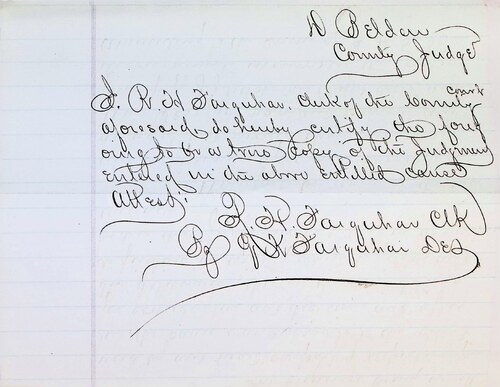 D Belden
County Judge
I. R. H. Farquhar, Clerk of the County Court
aforesaid do hereby certify the fore
going to be a true Copy of the Judgment
entered in the above entitled cause
Attest:
R. H. Farquhar Clk
By J H Farquhar Dep